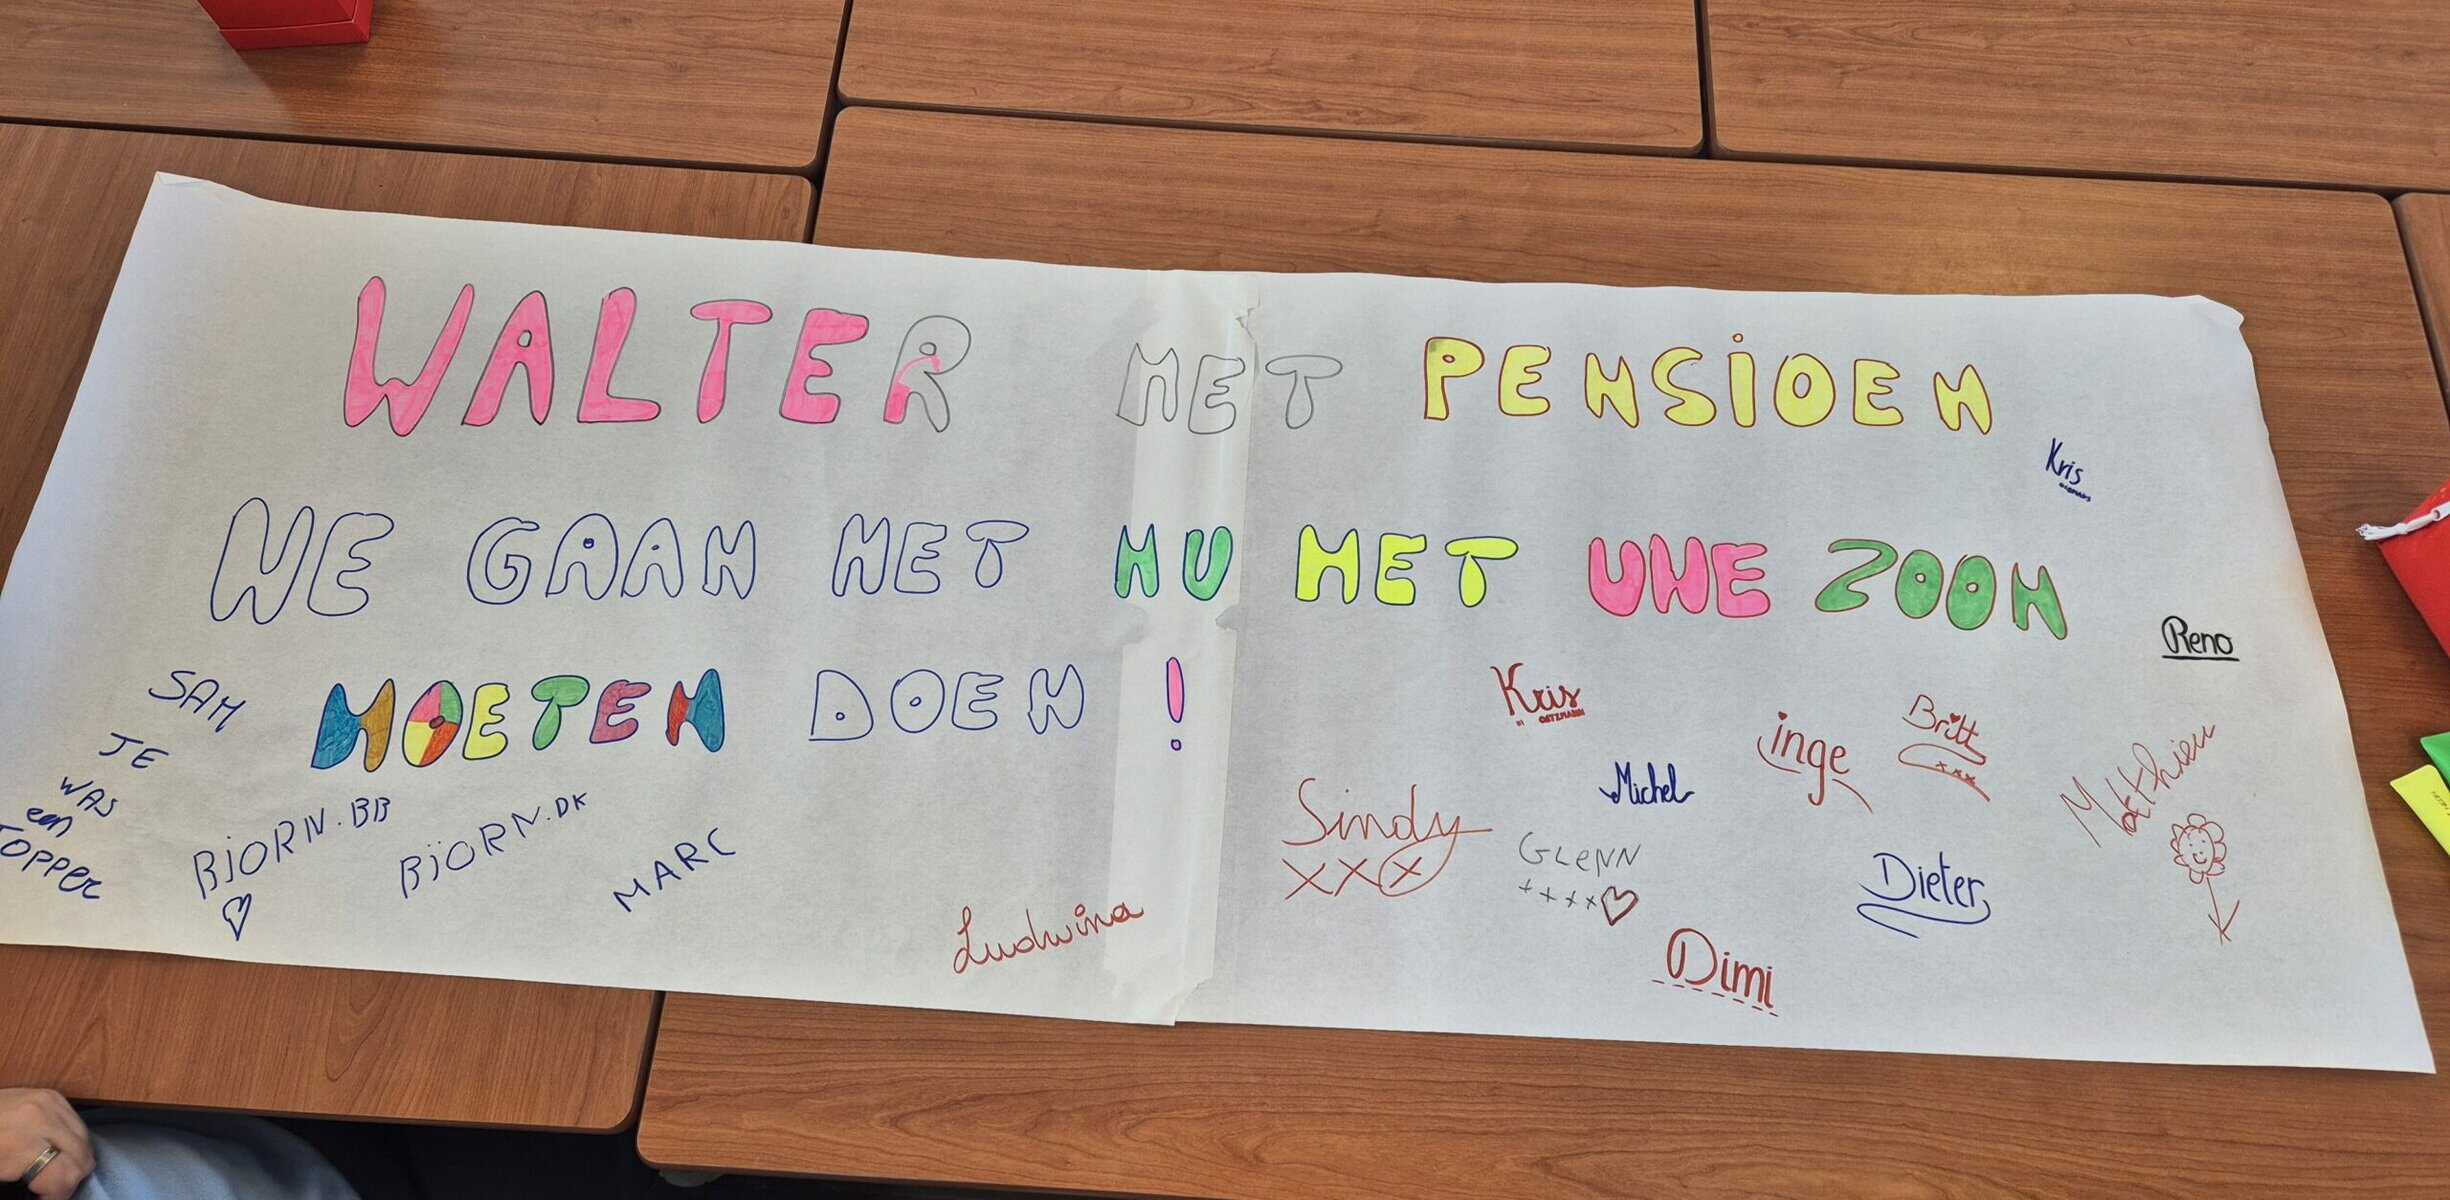 WALTER MET PENSIOEN
WE GAAN HET NU MET UWE ZOON
MOETEN DOEN !
SAM
JE
WAS
een
TOPPER
BJORN.BB
BJÖRN.DK
MARC
Ludwina
Kris
Reno
Kris
Michel
inge
Britt
xxx
Matthieu
Sindy
XXX
GLENN
xxxx
Dieter
Dimi